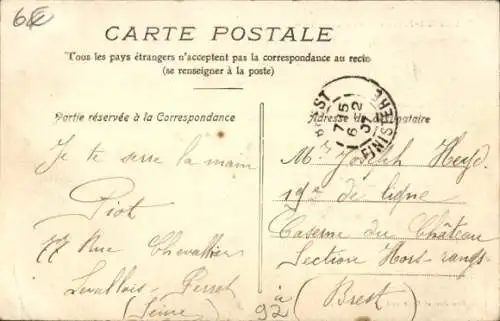 6€
CARTE POSTALE
Tous les pays étrangers n'acceptent pas la correspondance au recto
(se renseigner à la poste)
Partie réservée à la Correspondance
Adresse du destinataire
BREST
7 25
6 2
07
FINISTERE
Je te serre la main
Piot
77 Rue Chevallier
Levallois-Perret
(Seine)
Mr Joseph Heyd.
19e de ligne
Caserne du Château
Section Hors-rangs
à
(Brest)
92